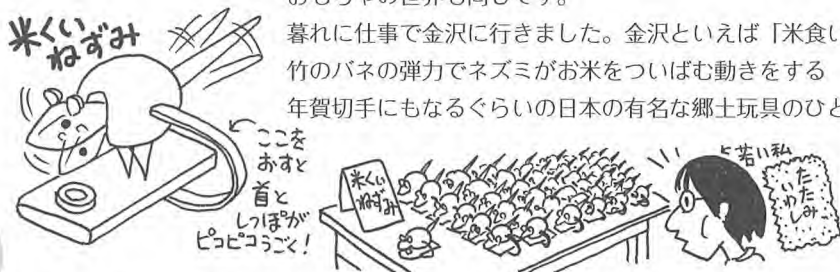 おもちゃの世界も同じです。
暮れに仕事で金沢に行きました。金沢といえば「米食い
竹のバネの弾力でネズミがお米をついばむ動きをする
年賀切手にもなるぐらいの日本の有名な郷土玩具のひと
米くい
ねずみ
ここを
おすと
首と
しっぽが
ピコピコうごく!
米くい
ねずみ
若い私
たたみ
いわし